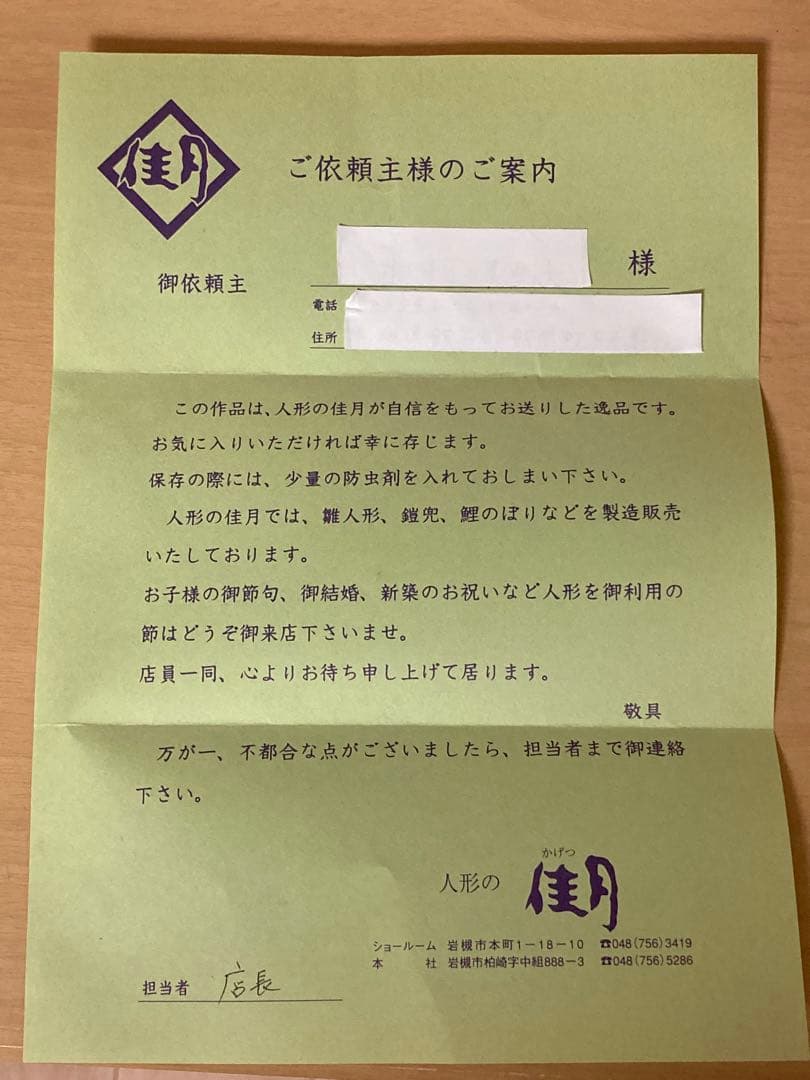 佳月
ご依頼主様のご案内
御依頼主
様
電話
住所
この作品は、人形の佳月が自信をもってお送りした逸品です。
お気に入りいただければ幸に存じます。
保存の際には、少量の防虫剤を入れておしまい下さい。
人形の佳月では、雛人形、鎧兜、鯉のぼりなどを製造販売
いたしております。
お子様の御節句、御結婚、新築のお祝いなど人形を御利用の
節はどうぞ御来店下さいませ。
店員一同、心よりお待ち申し上げて居ります。
敬具
万が一、不都合な点がございましたら、担当者まで御連絡
下さい。
かげつ
人形の 佳月
ショールーム 岩槻市本町1-18-10 ☎048(756)3419
本社 岩槻市柏崎字中組888-3 ☎048(756)5286
担当者 店長